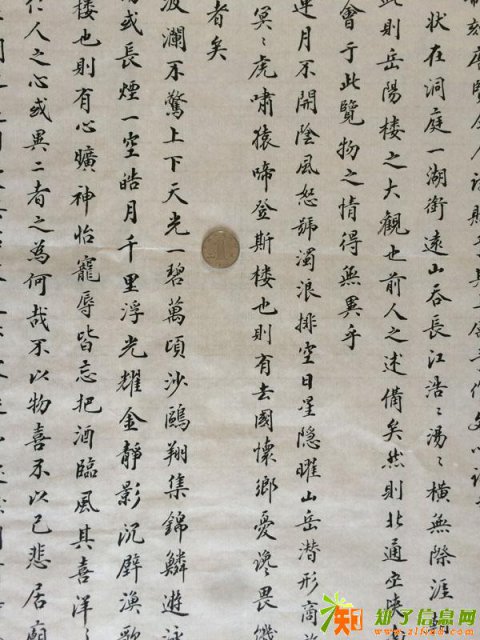 刻唐賢今人詩賦
状在洞庭一湖銜遠山吞長江浩々湯々橫無際涯
此則岳陽楼之大觀也前人之述備矣然則北通巫峡
會于此覽物之情得無異乎
連月不開陰風怒號濁浪排空日星隱曜山岳潜形商
冥々虎嘯猿啼登斯楼也則有去國懷鄉憂讒畏譏
者矣
波瀾不驚上下天光一碧萬頃沙鷗翔集錦鱗遊泳
或長煙一空皓月千里浮光耀金靜影沉璧漁歌
楼也則有心曠神怡寵辱皆忘把酒臨風其喜洋
仁人之心或異二者之為何哉不以物喜不以己悲居廟
知了信息网